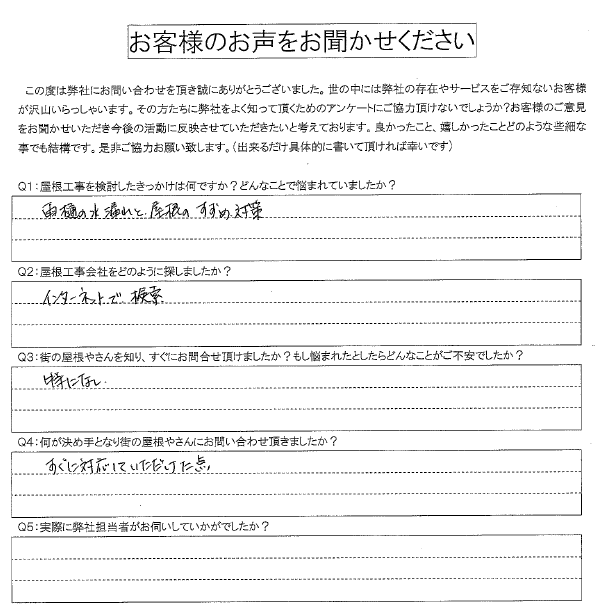 お客様のお声をお聞かせください
この度は弊社にお問い合わせを頂き誠にありがとうございました。世の中には弊社の存在やサービスをご存知ないお客様
が沢山いらっしゃいます。その方たちに弊社をよく知って頂くためのアンケートにご協力頂けないでしょうか?お客様のご意見
をお聞かせいただき今後の活動に反映させていただきたいと考えております。良かったこと、嬉しかったことどのような些細な
事でも結構です。是非ご協力お願い致します。(出来るだけ具体的に書いて頂ければ幸いです)
Q1:屋根工事を検討したきっかけは何ですか?どんなことで悩まれていましたか?
雨樋の水漏れと屋根のすずめ対策
Q2:屋根工事会社をどのように探しましたか?
インターネットで検索
Q3:街の屋根やさんを知り、すぐにお問合せ頂けましたか?もし悩まれたとしたらどんなことがご不安でしたか?
特になし
Q4:何が決め手となり街の屋根やさんにお問い合わせ頂きましたか?
すぐに対応していただけた点
Q5:実際に弊社担当者がお伺いしていかがでしたか?